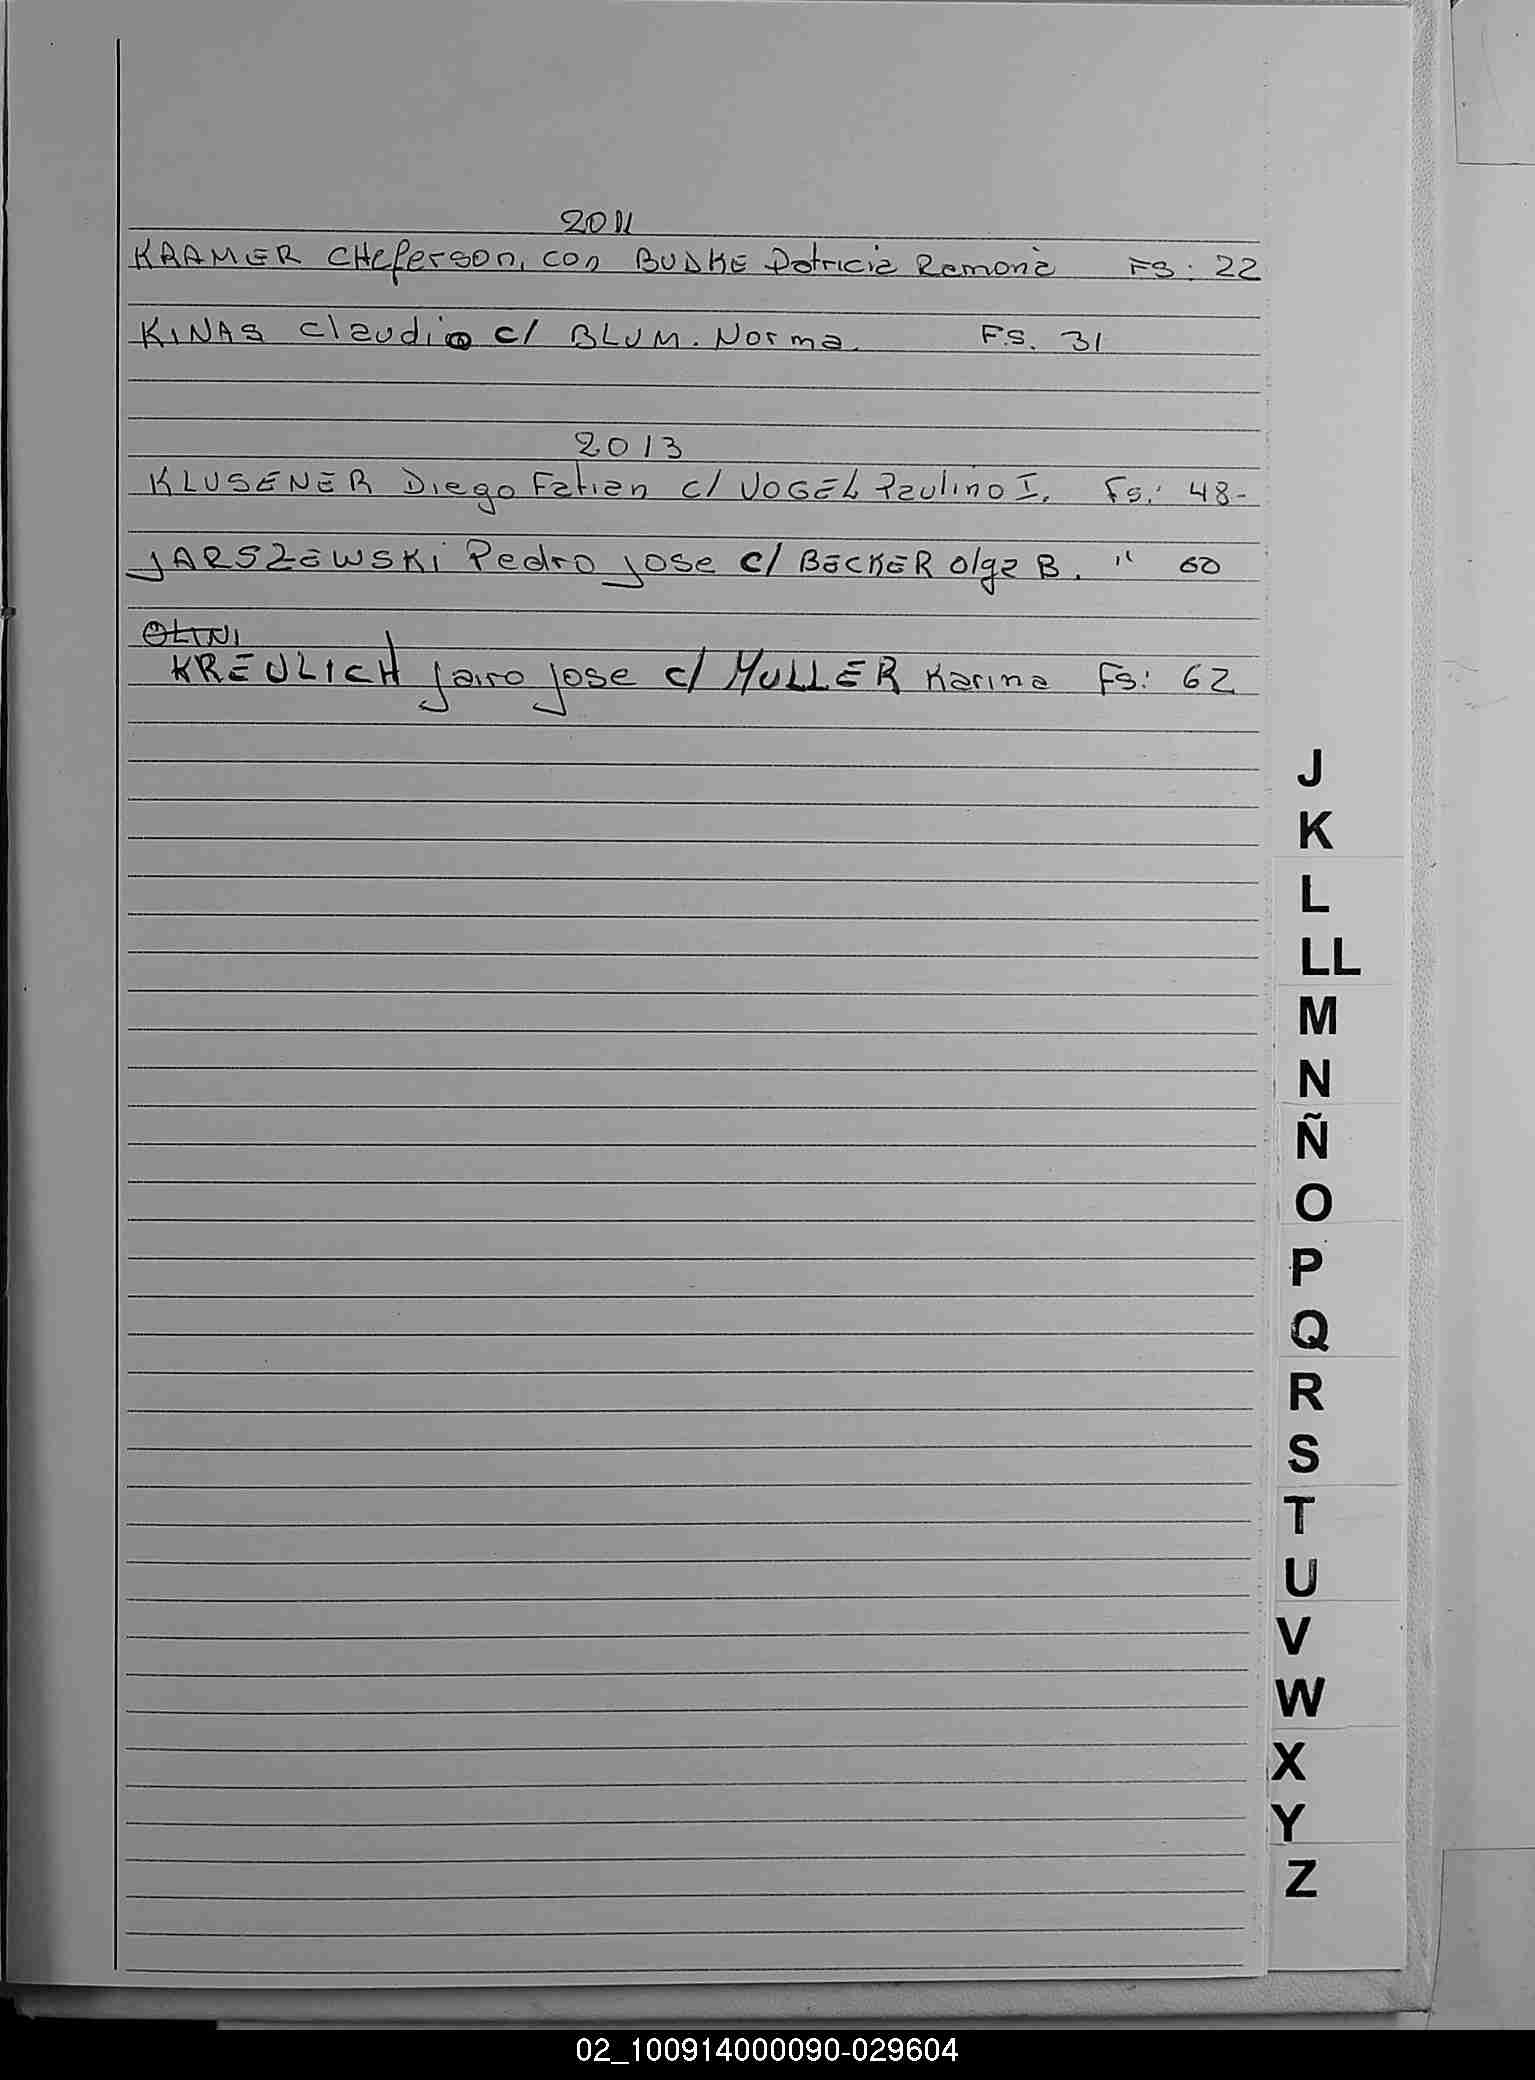 2011
KRAMER CHeferson, con BUDKE Patricia Ramona FS: 22
KINAS Claudio c/ BLUM. Norma F.S. 31
2013
KLUSENER Diego Fabian c/ VOGEL Paulino I. Fs.: 48-
JARSZEWSKI Pedro Jose c/ BECKER Olga B. " 60
KREULICH Jairo Jose c/ MULLER Karina Fs: 62
J
K
L
LL
M
N
Ñ
O
P
Q
R
S
T
U
V
W
X
Y
Z
02_100914000090-029604